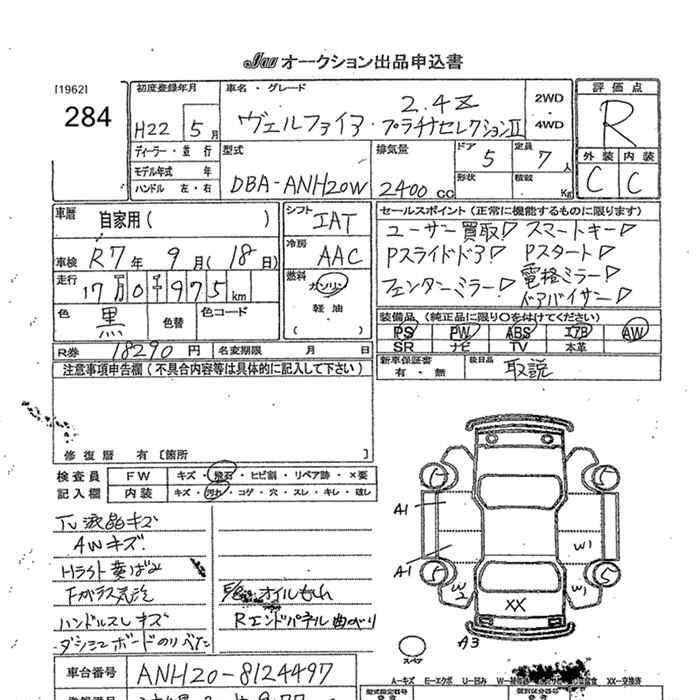 オークション出品申込書
[1962]
284
初度登録年月
H22 5月
車名・グレード
2.4Z
ヴェルファイア・プラチナセレクションII
2WD
・
4WD
評価点
R
外装 内装
C C
ディーラー・並行
モデル年式 年
ハンドル 左・右
型式
DBA-ANH20W
排気量
2400cc
ドア
5
定員
7人
形状
積載
Kg
車歴
自家用( )
車検 R7年 9月(18日)
走行
17万0千975km
色
黒
色替
色コード
シフト
IAT
冷房
AAC
燃料
ガソリン
軽油
( )
セールスポイント(正常に機能するものに限ります)
ユーザー買取! スマートキー!
Pスライドドア! Pスタート!
フェンダーミラー! 電格ミラー!
ドアバイザー!
装備品(純正品に限り〇を付けてください)
PS PW ABS エアB AW
SR ナビ TV 本革
R券 18290円 名変期限 月 日
新車保証書
有・無
後日品
取説
注意事項申告欄(不具合内容等は具体的に記入して下さい)
修復歴 有〔箇所 〕
検査員
記入欄
FW キズ・飛石・ヒビ割・リペア跡・×要
内装 キズ・汚れ・コゲ・穴・スレ・キレ・破し
TV液晶キズ
AWキズ.
Hライト黄ばみ
Fガラス気泡
ハンドルスレキズ
ダッシュボードのりべた
オイルもれ
Rエンドパネル曲がり
A1
A1
W1
W2
W1
XX
A3
スペア
A-キズ E-エクボ U-凹み XX-交換済
車台番号 ANH20-8124497